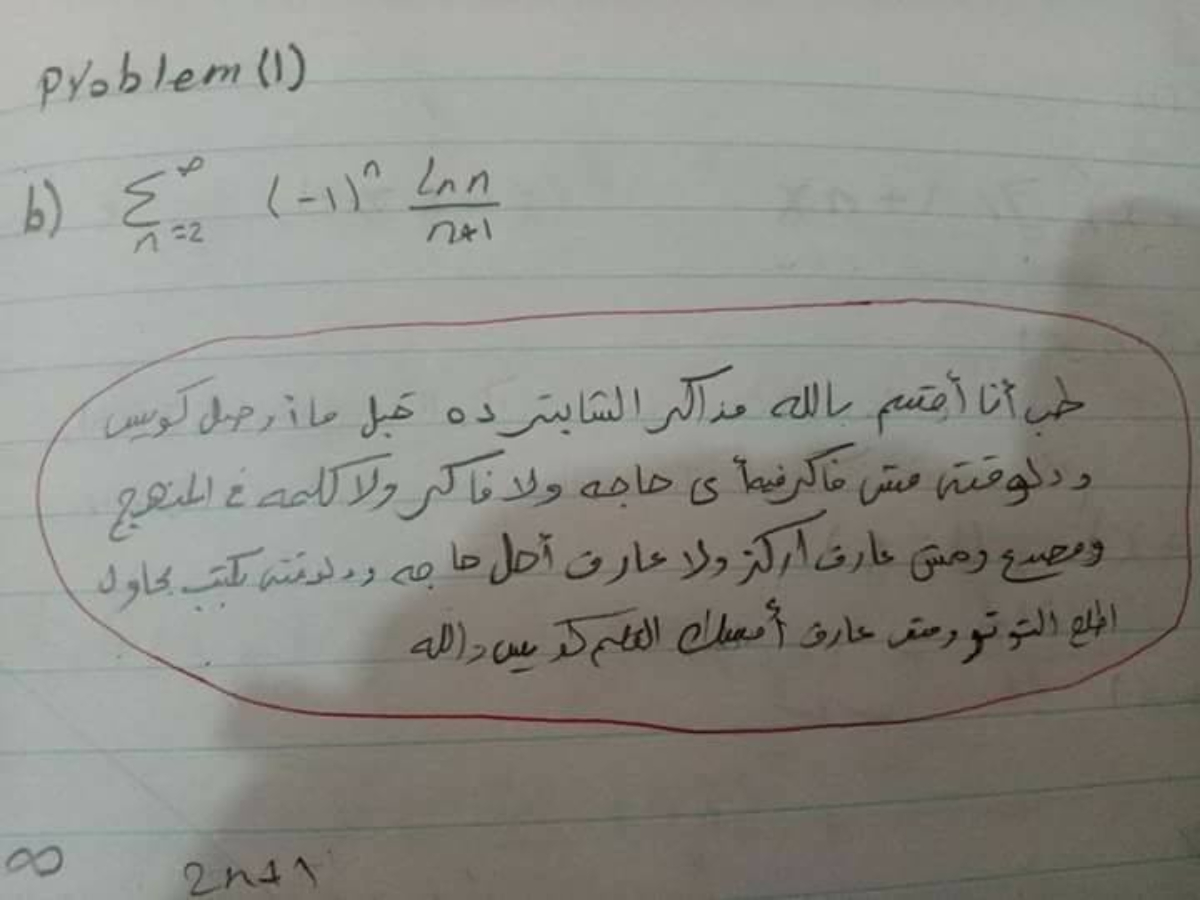 Problem (1)
b) ∑_{n=2}^{∞} (-1)^n \frac{ln n}{n+1}
طب أنا أقسم بالله مذاكر الشابتر ده قبل ما أوصل كويس
ودلوقتى مش فاكر فيه أى حاجه ولا فاكر ولا كلمه فى المنهج
ومصدع ومش عارف أركز ولا عارف أحل حاجه ودلوقتى بكتب بحاول
اطلع التوتر ومش عارف أمسك القلم كويس والله
∞ 2n+1